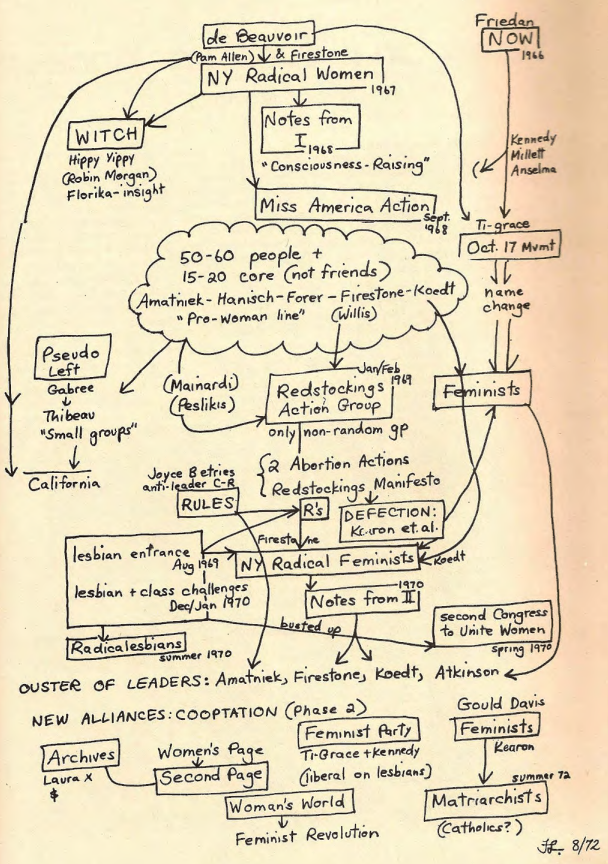 de Beauvoir
Friedan
NOW
1966
(Pam Allen) & Firestone
NY Radical Women
1967
WITCH
Hippy Yippy
(Robin Morgan)
Florika-insight
Notes from
I
1968
"Consciousness-Raising"
Kennedy
Millett
Anselma
Miss America Action
Sept.
1968
Ti-grace
Oct. 17 Mvmt
name
change
50-60 people +
15-20 core (not friends)
Amatniek-Hanisch-Forer-Firestone-Koedt
"Pro-woman line" (Willis)
Pseudo
Left
Gabree
Thibeau
"Small groups"
California
(Mainardi)
(Peslikis)
Jan/Feb
1969
Redstockings
Action Group
only non-random gp
Feminists
2 Abortion Actions
Redstockings Manifesto
Joyce Betries
anti-leader C-R
RULES
R's
DEFECTION:
Kearon et.al.
Firestone
lesbian entrance
Aug 1969
lesbian + class challenges
Dec/Jan 1970
NY Radical Feminists
Koedt
1970
Notes from II
busted up
second Congress
to Unite Women
spring 1970
Radicalesbians
summer 1970
OUSTER OF LEADERS: Amatniek, Firestone, Koedt, Atkinson
NEW ALLIANCES: COOPTATION (Phase 2)
Archives
Laura X
$
Women's Page
Second Page
Feminist Party
Ti-Grace + Kennedy
(liberal on lesbians)
Gould Davis
Feminists
Kearon
Woman's World
Feminist Revolution
summer 72
Matriarchists
(Catholics?)
8/72